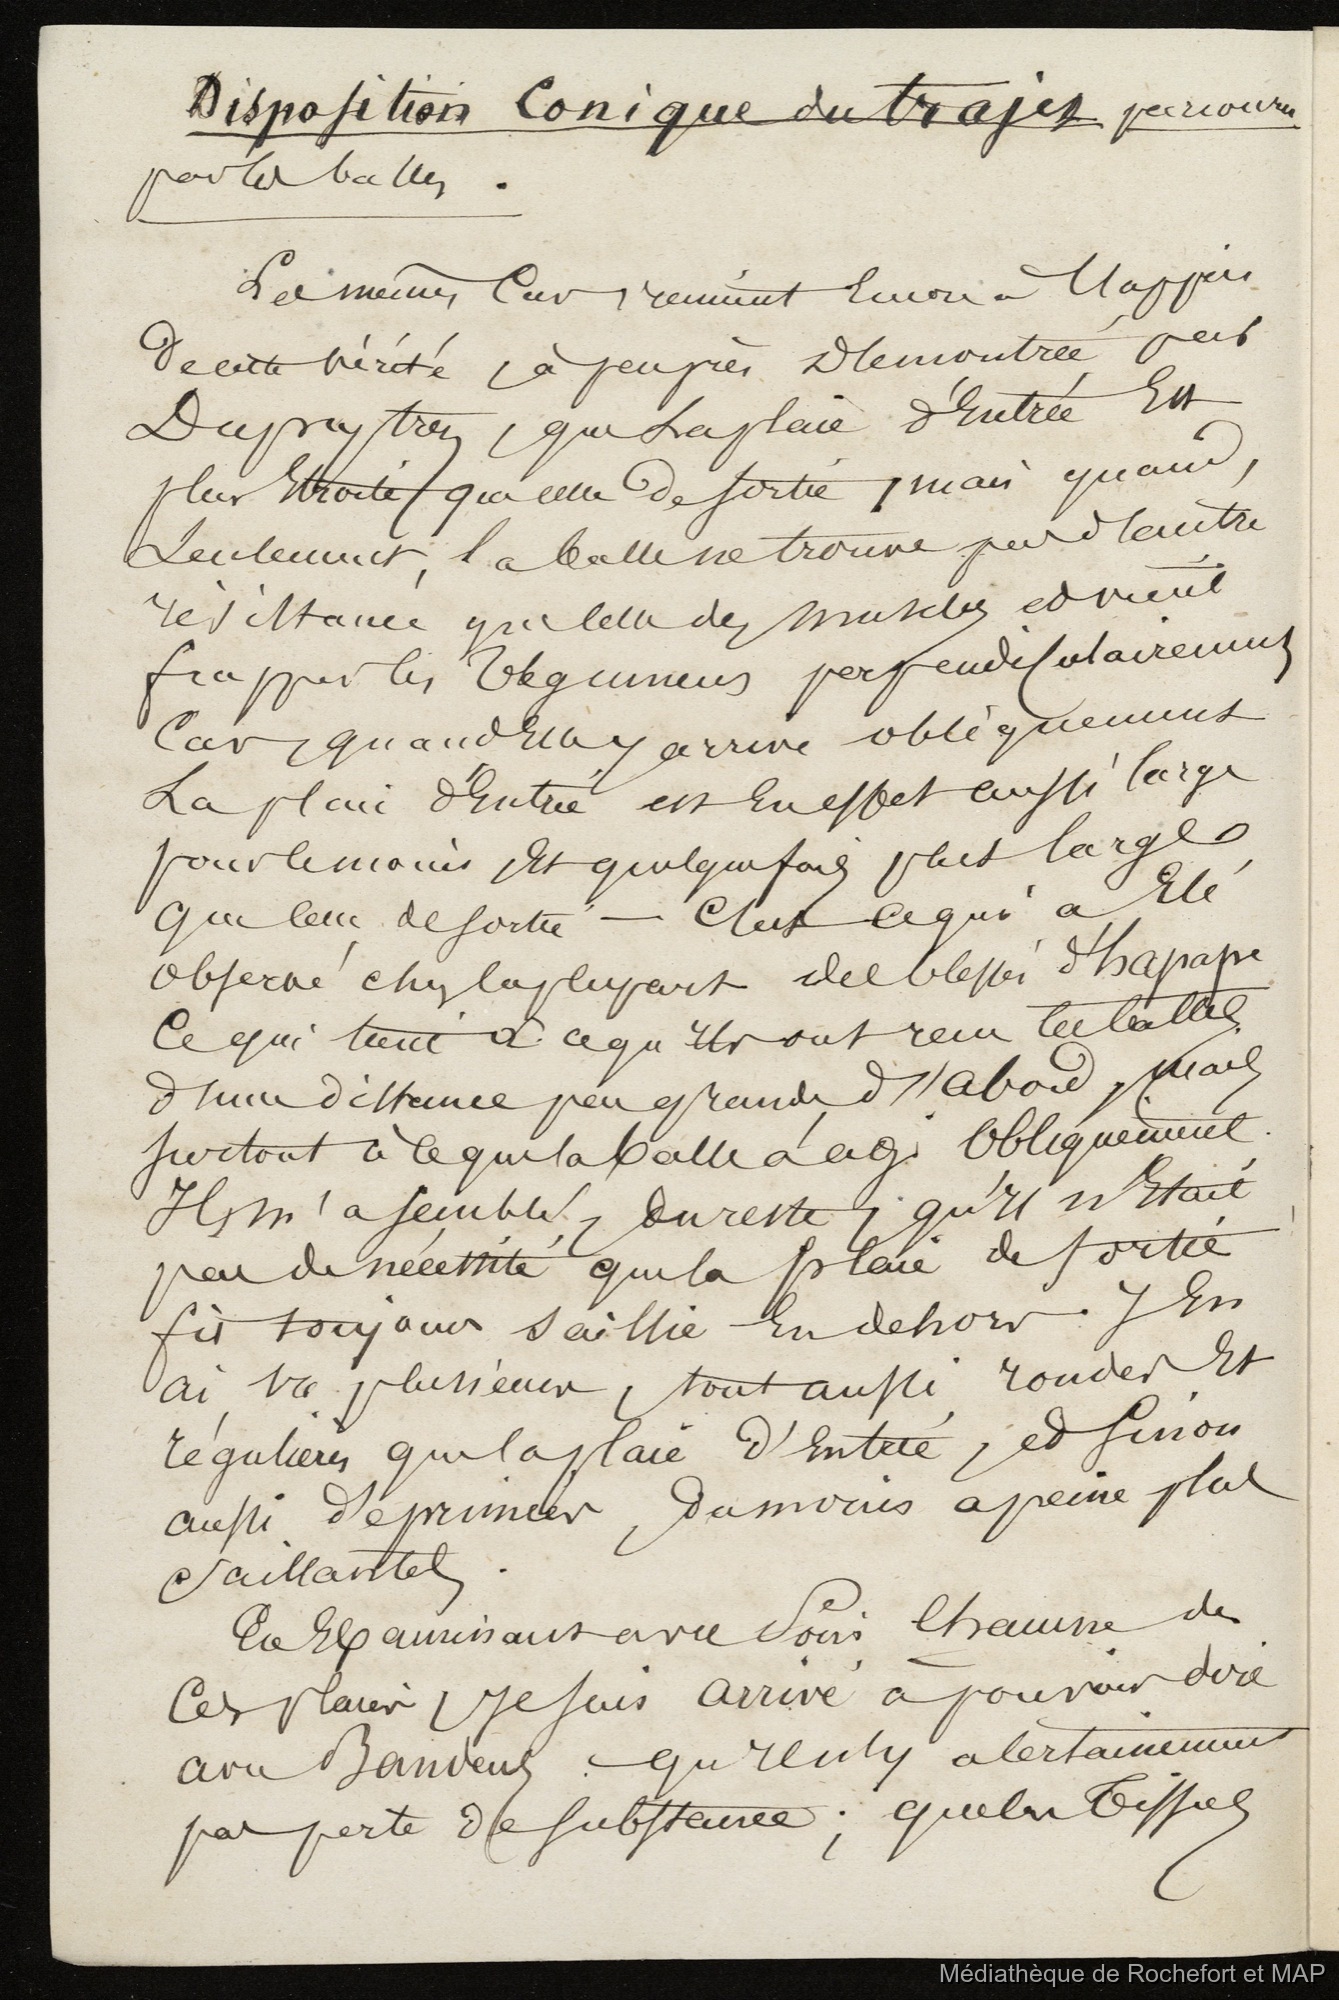 Disposition Conique du trajet parcouru
par les balles .
Les mêmes Cas viennent Encore à l'appui
De cette vérité, à peu près Démontrée par
Dupuytren, que La plaie d'Entrée Est
plus Etroite que celle de sortie, mais quand,
Seulement, la balle ne trouve pas d'autre
résistance que celle des muscles et vient
frapper les Téguments perpendiculairement
Car, quand Elle y arrive obliquement
La plaie d'Entrée est En effet aussi large
pour le moins Et quelquefois plus large
que celle de sortie — C'est ce qui a Eté
observé chez la plupart des blessés d'hapape
Ce qui tient à ce qu'Ils ont reçu les balles
d'une distance peu grande d'abord, mais
surtout à ce que la balle a agi Obliquement.
Il m'a semblé, du reste, qu'Il n'Etait
pas de nécessité que la plaie de sortie
fit toujours saillie En dehors. J'En
ai vu plusieurs, tout aussi rondes Et
régulières que la plaie d'Entrée, et sinon
aussi déprimées, du moins à peine plus
Saillantes.
En Examinant avec Soin chacune de
Ces plaies, Je suis arrivé à pouvoir dire
avec Baudens qu'Il n'y a certainement
pas perte de substance ; que les Tissus
Médiathèque de Rochefort et MAP